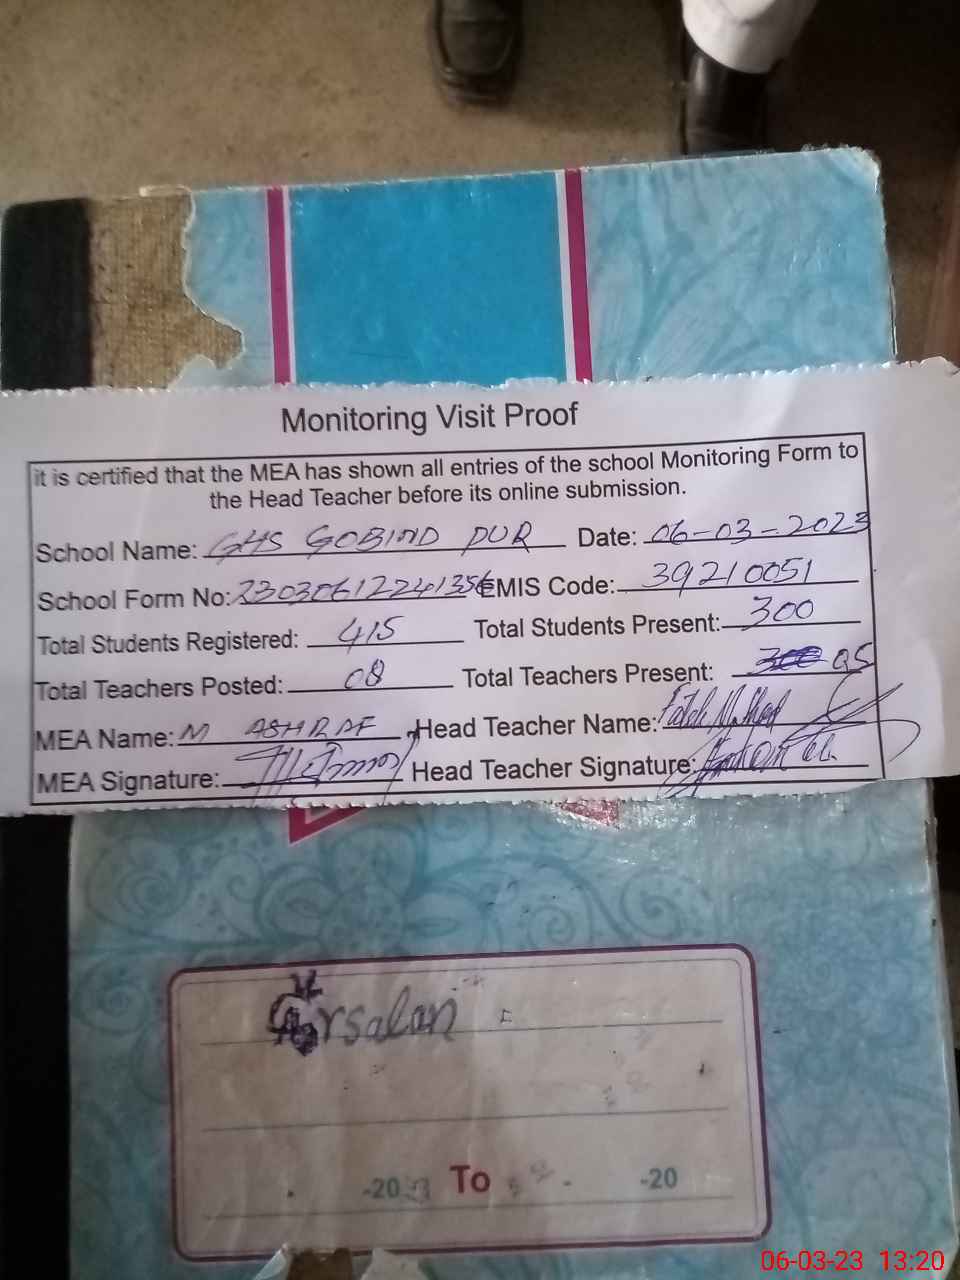 Monitoring Visit Proof
it is certified that the MEA has shown all entries of the school Monitoring Form to
the Head Teacher before its online submission.
School Name: GHS GOBIND PUR Date: 06-03-2023
School Form No: EMIS Code: 39210051
Total Students Registered: 415 Total Students Present: 300
Total Teachers Posted: 08 Total Teachers Present: 05
MEA Name: M ASHRAF Head Teacher Name:
MEA Signature: Head Teacher Signature:
Arsalan
-20 To -20
06-03-23 13:20